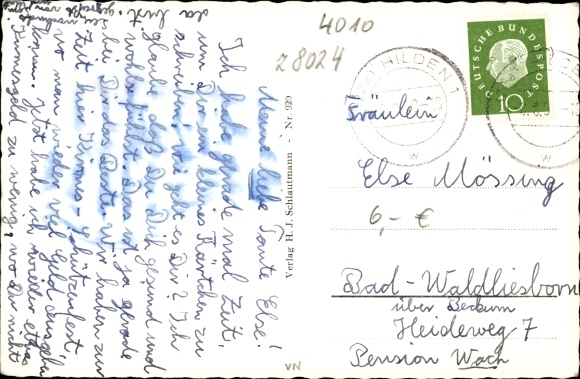 4010
z8024
DEUTSCHE BUNDESPOST
10
HILDEN 1
Meine liebe Tante Else!
Ich habe gerade mal Zeit,
um Dir ein kleines Kärtchen zu
schreiben. Wie geht es Dir? Ich
glaube daß Du Dich gesund und
wohl fühlst. Das ist ja gerade
bei Dir das Beste. Wir haben zur
Zeit hier Kirmes - Schützenfest
wo man wieder viel Geld ausgeben
kann. Jetzt habe ich wieder etwas
zu wenig, wo Du nicht
da bist.
Verlag H. J. Schlautmann - Nr. 929
Fräulein
Else Mössing
6,- €
Bad-Waldliesborn
über Beckum
Heideweg 7
Pension Wach
VN